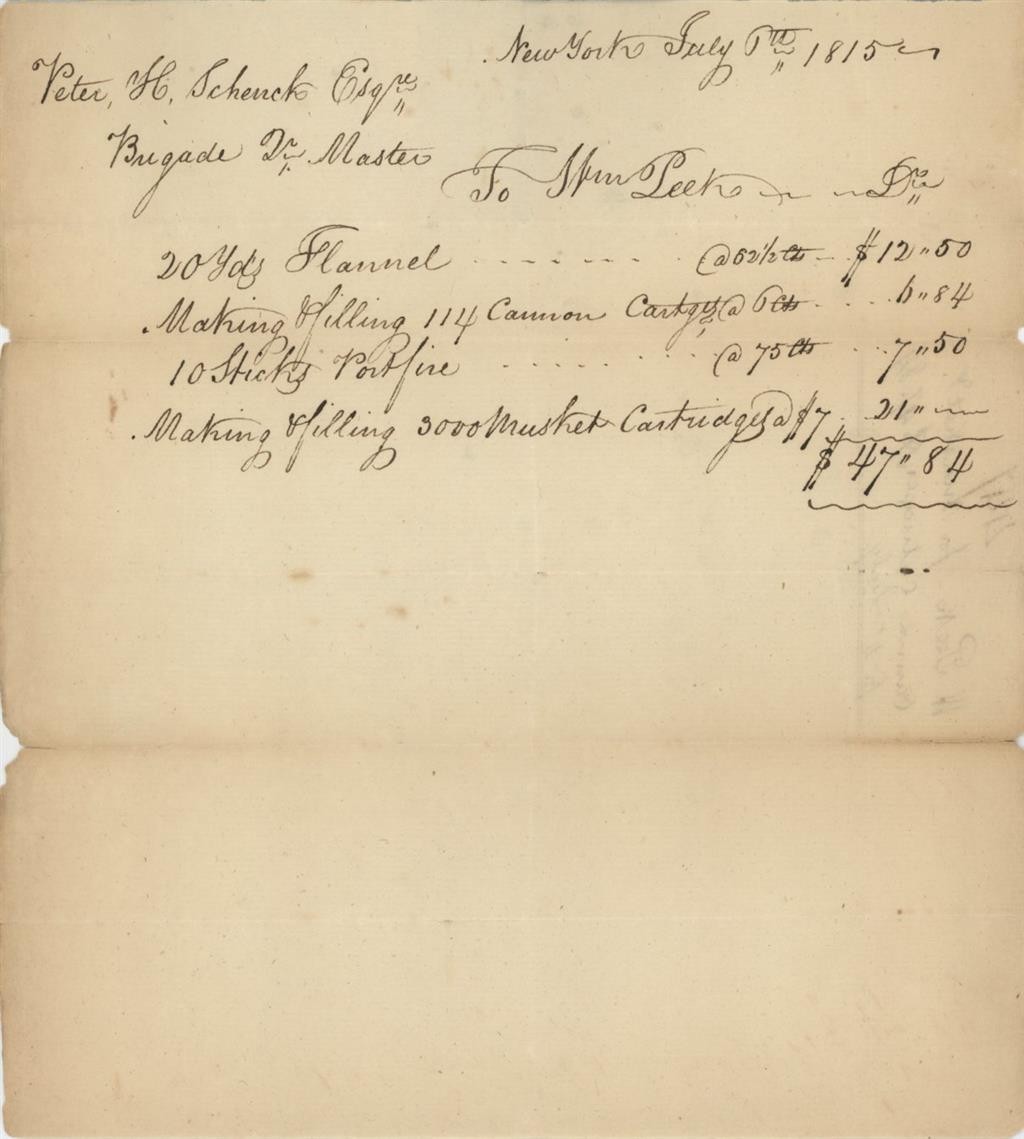 New York July 6th 1815
Peter, H, Schenck Esqre
Brigade Qr. Master
To Wm Peek Dr
20 Yds Flannel @ 62½ cts $12"50
Making & filling 114 Cannon Cartgs @ 6 cts 6"84
10 Sticks Portfire @ 75 cts 7"50
Making & filling 3000 Musket Cartridges @ $7 21"
$47"84